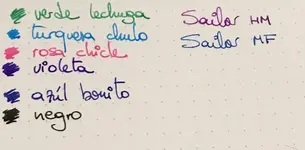 verde lechuga
turquesa chulo
rosa chicle
violeta
azúl bonito
negro
Sailor HM
Sailor MF